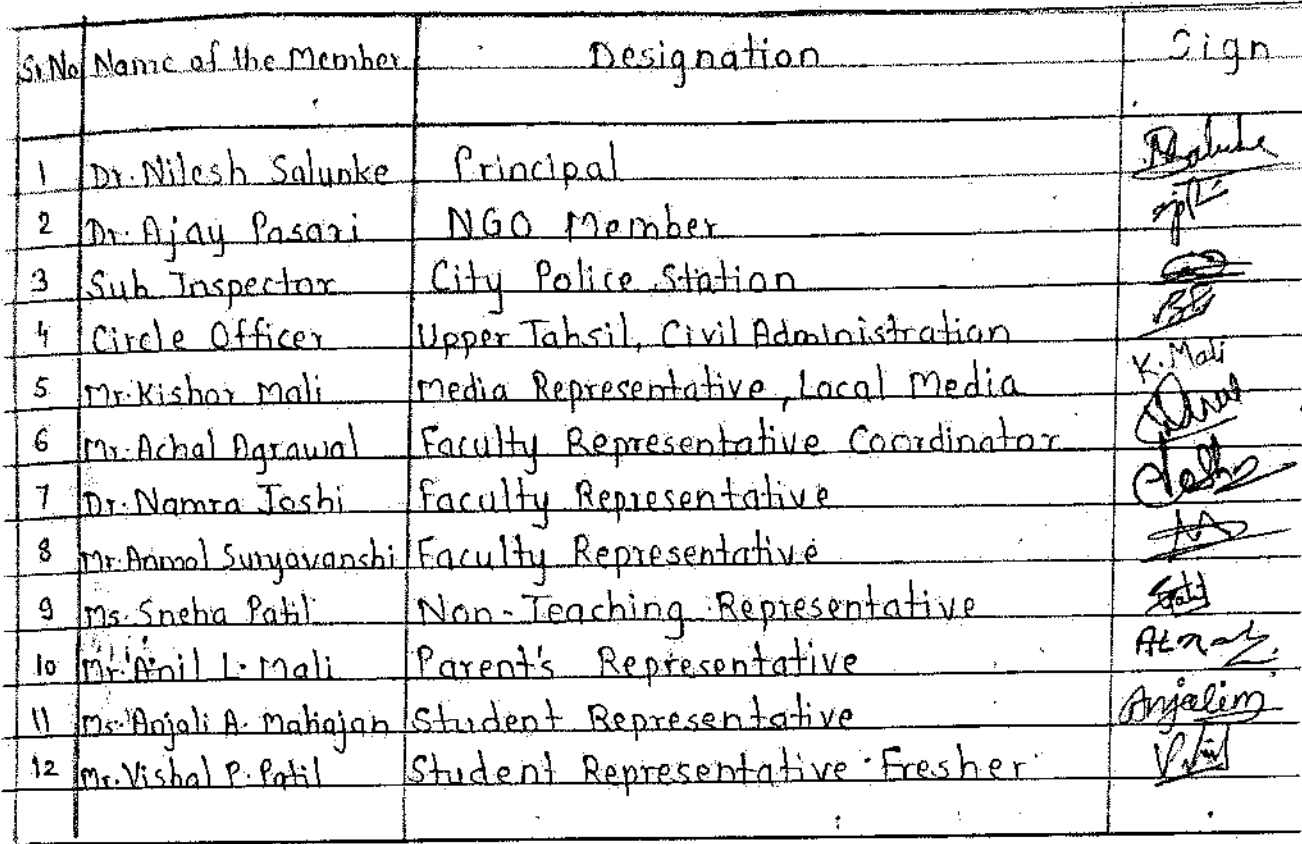 Sr.No Name of the Member Designation Sign
1 Dr. Nilesh Salunke Principal
2 Dr. Ajay Pasari NGO Member
3 Sub Inspector City Police Station
4 Circle Officer Upper Tahsil, Civil Administration
5 Mr. Kishor Mali Media Representative, Local Media K. Mali
6 Mr. Achal Agrawal Faculty Representative Coordinator
7 Dr. Namra Joshi Faculty Representative
8 Mr. Anmol Suryavanshi Faculty Representative
9 Ms. Sneha Patil Non-Teaching Representative
10 Mr. Anil L. Mali Parent's Representative
11 Ms. Anjali A. Mahajan Student Representative Anjalim
12 Mr. Vishal P. Patil Student Representative Fresher